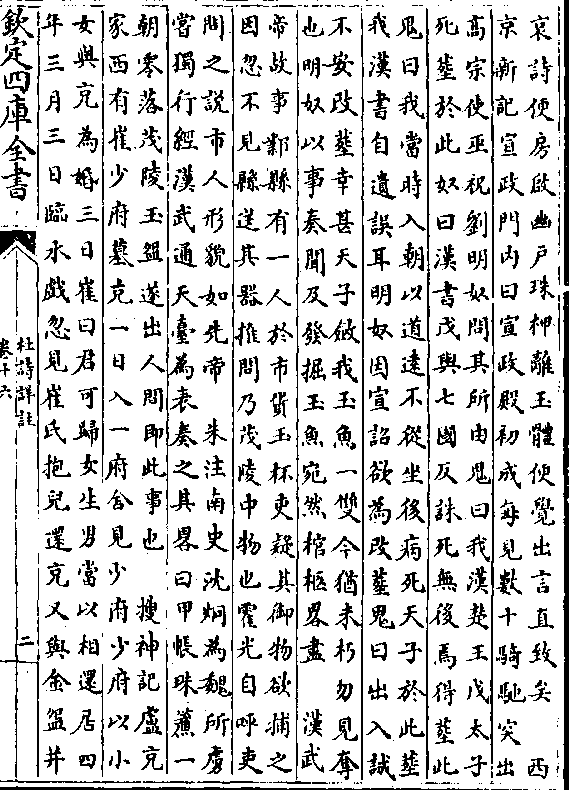 哀詩便房啟幽戸珠柙離玉體便覺出言直致矣　西
京新記宣政門内曰宣政殿初成每見數十騎馳突出
高宗使巫祝劉明奴問其所由鬼曰我漢楚王戊太子
死塟於此奴曰漢書戊與七國反誅死無後焉得塟此
鬼曰我當時入朝以道逺不從坐後病死天子於此塟
我漢書自遺誤耳明奴因宣詔欲為改塟鬼曰出入誠
不安改塟幸甚天子斂我玉魚一雙今猶未朽勿見奪
也明奴以事奏聞及發掘玉魚宛然棺柩畧盡　漢武
帝故事鄠縣有一人於市貨玉杯吏疑其御物欲捕之
因忽不見縣送其器推問乃茂陵中物也霍光自呼吏
問之說市人形貌如先帝　朱注南史沈炯為魏所虜
嘗獨行經漢武通天臺為表奏之其畧曰甲帳珠簾一
朝零落茂陵玉盌遂出人間即此事也　搜神記盧充
家西有崔少府墓充一日入一府舍見少府少府以小
女與充為婚三日崔曰君可歸女生男當以相還居四
年三月三日臨水戲忽見崔氏抱兒還充又與金盌并
欽定四庫全書
杜詩詳註
卷十六
二